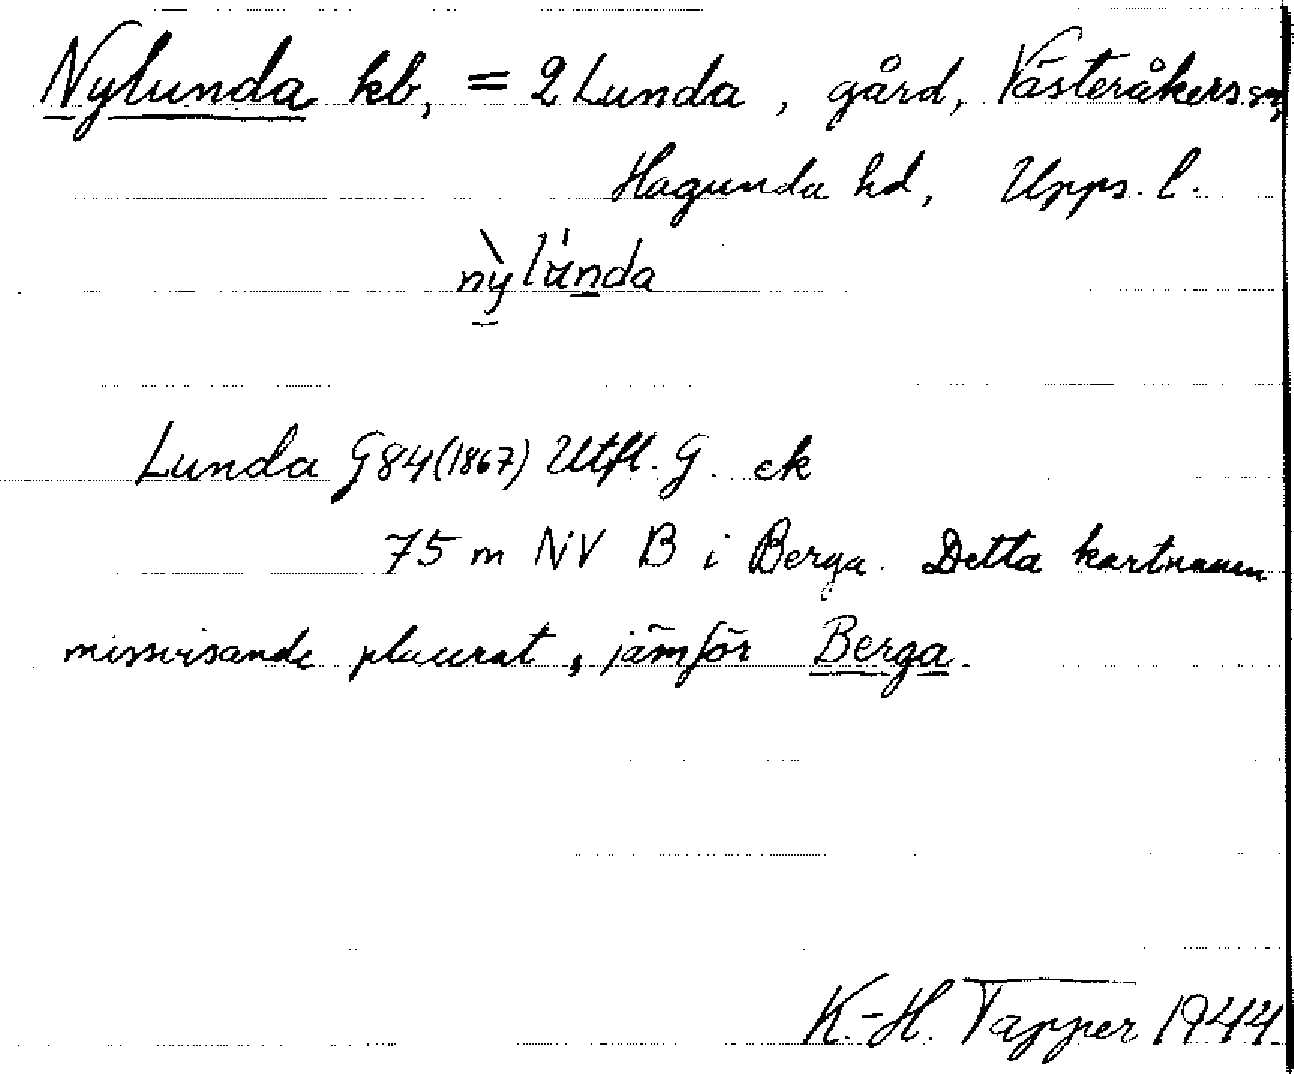 Nylunda kb, = 2 Lunda, gård, Västeråkers sn,
Hagunda hd, Upps. l.
nỳlúnda
Lunda G84(1867) Utfl. G. ek
75 m NV B i Berga. Detta kartnamn
missvisande placerat, jämför Berga.
K.-H. Tapper 1944.